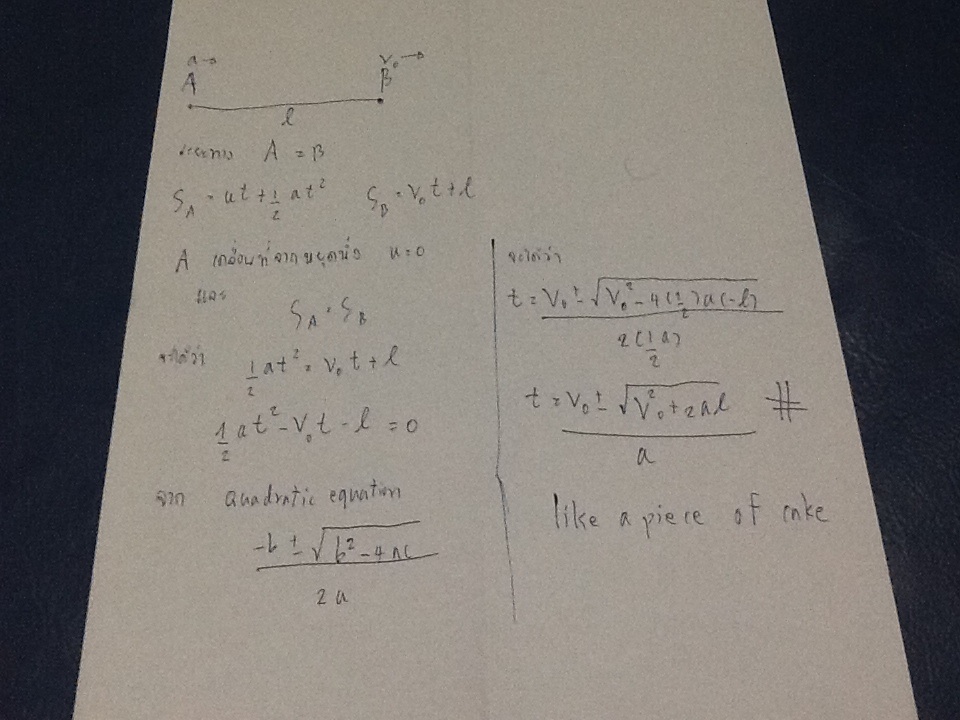 a→ v₀→
A B
l
ระยะทาง A = B
S_A = ut + 1/2 at² S_B = v₀t + l
A เคลื่อนที่จากหยุดนิ่ง u = 0
และ
S_A = S_B
จะได้ว่า 1/2 at² = v₀t + l
1/2 at² - v₀t - l = 0
จาก quadratic equation
-b ± √(b² - 4ac)
2a
จะได้ว่า
t = v₀ ± √(v₀² - 4(1/2)a(-l))
2(1/2 a)
t = v₀ ± √(v₀² + 2al) #
a
like a piece of cake